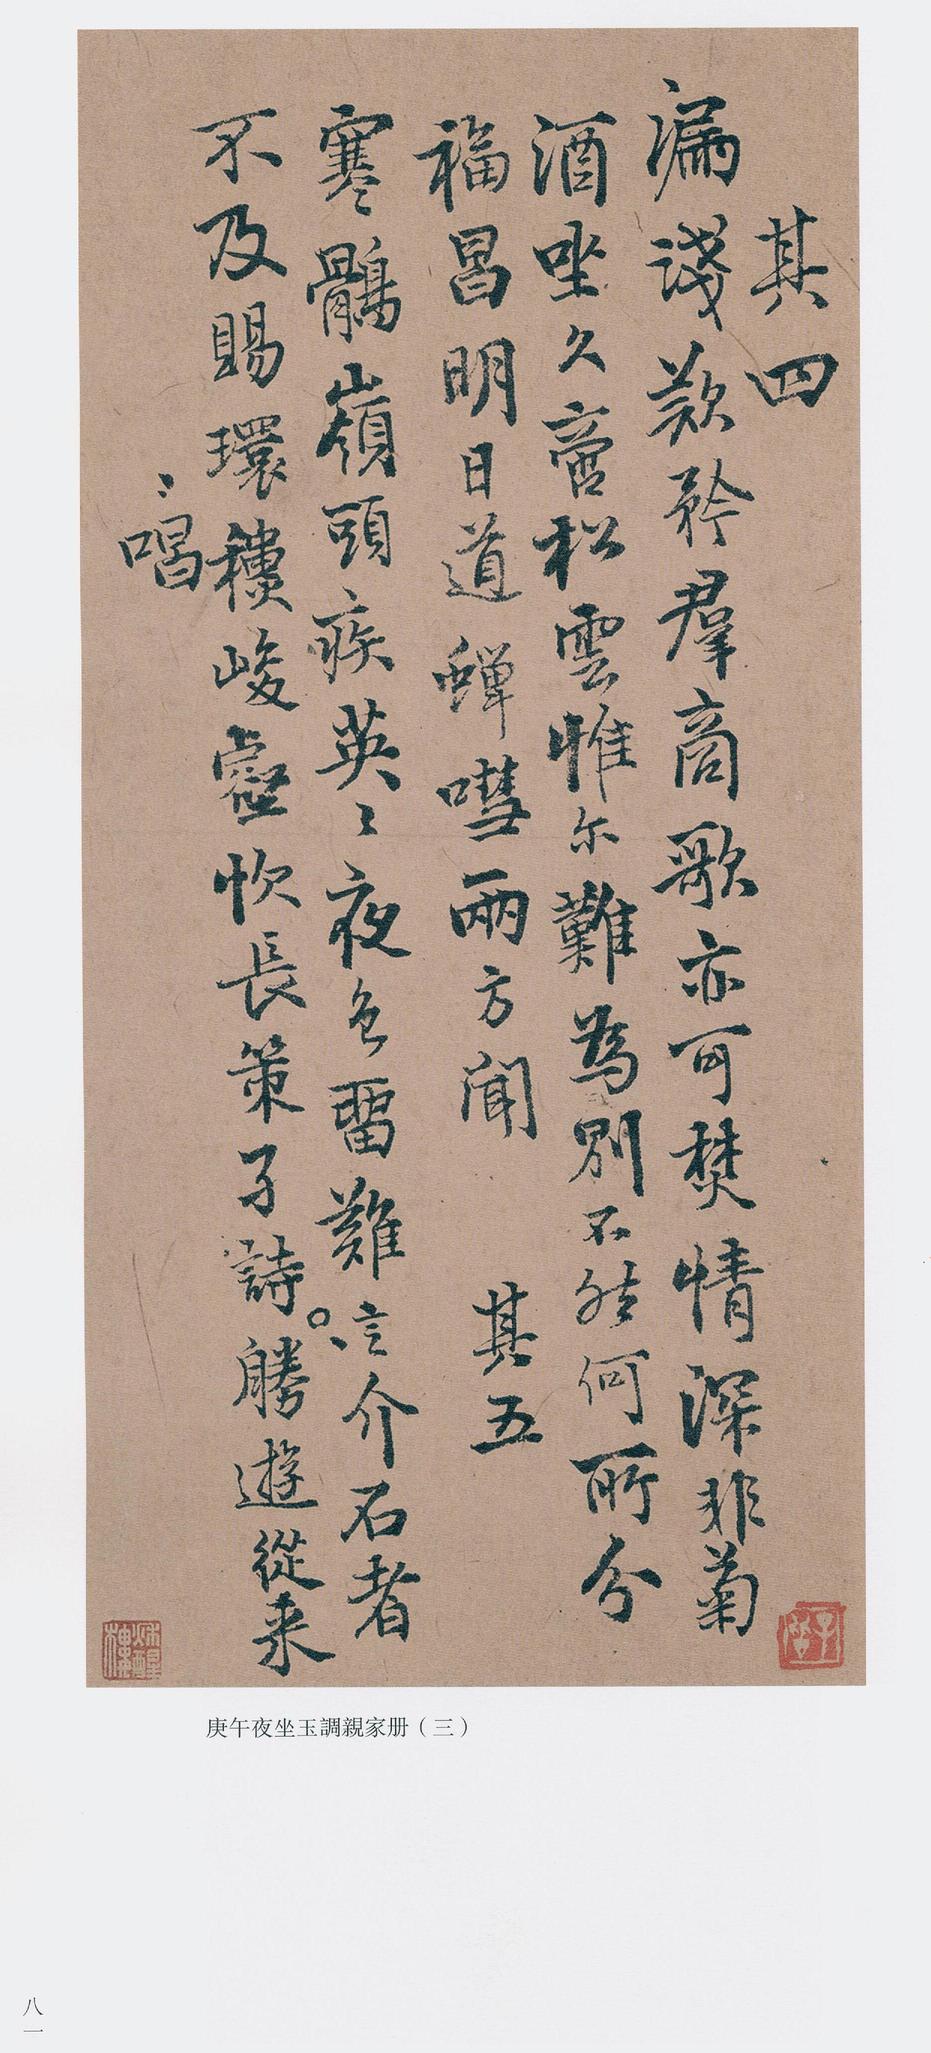 其四
漏淺歎矜羣商歌亦可焚情深非菊
酒坐久嗇松雲惟尔難為別不然何所分
福昌明日道蟬噿兩方聞　其五
寒〻鶻嶺頭疾英〻夜色留難言介石者
不及賜環穠峻壑忺長策子詩勝遊從来
〻唱
庚午夜坐玉調親家册（三）
八一